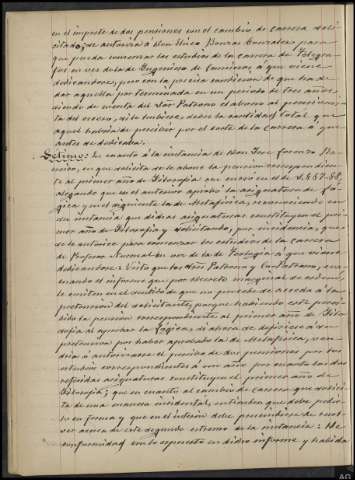 en el importe de dos pensiones en el cambio de carrera soli-
citado, se autorice á Don Ulises Porras Gonzalez, para
que pueda comenzar los estudios de la carrera de Telegra-
fos en vez de la de Ingeniero de Caminos, á que viene
dedicandose; pero con la precisa condicion de que ha de
dar aquella por terminada en un periodo de tres años
siendo de cuenta del Sor Patrono el abono al pensionis-
ta del exceso, si lo hubiese, sobre la cantidad total que
aquel habria de percibir por el coste de la carrera á que
antes se dedicaba.
Setimo: En cuanto á la instancia de Don Jose Lorenzo
en que solicita se le abone la pension correspondien-
te al primer año de Filosofia en el de 1.887-88,
alegando que en el anterior aprobó la asignatura de Ló-
gica y en el siguiente la de Metafisica, reconociendo en
su instancia que dichas asignaturas constituyen el pri-
mer año de Filosofia y solicitando, por incidencia, que
se le autorice para comenzar los estudios de la carrera
de Profesor Normal en vez de la de Teologia á que viene
dedicandose: Visto que los Sres Patrono y Con-Patrono, eva-
cuando el informe que por decreto marginal se ordenó,
lo emiten en el sentido de que no puede accederse á la
pretension del solicitante, porque habiendo este perci-
bido la pension correspondiente al primer año de Filo-
sofia al aprobar la Lógica, si ahora se defiriese á su
pretension por haber aprobado la de Metafisica, ven-
dria á autorizarse el percibo de dos pensiones por los
estudios correspondientes á un año por cuanto las dos
referidas asignaturas constituyen el primer año de
Filosofia; que en cuanto al cambio de carrera que solici-
ta de una manera incidental, entienden que debe pedir-
lo en forma y que en el interin debe prescindirse de resol-
ver acerca de este segundo extremo de la instancia: De
conformidad con lo expuesto en dicho informe y habida
AG